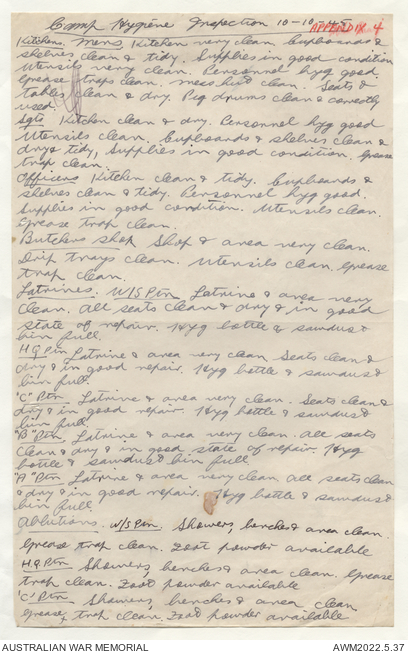 Camp Hygiene Inspection 10-10-45
APPENDIX 4
Kitchens. Mens, Kitchen very clean. Cupboards &
shelves clean & tidy. Supplies in good condition
Utensils very clean. Personnel hyg good.
Grease traps clean. Mess hut clean. Seats &
tables clean & dry. Pig drums clean & correctly
used.
Sgts Kitchen clean & dry. Personnel hyg good
Utensils clean. Cupboards & shelves clean &
dry & tidy, Supplies in good condition. Grease
trap clean.
Officers Kitchen clean & tidy. Cupboards &
shelves clean & tidy. Personnel hyg good.
Supplies in good condition. Utensils clean.
Grease trap clean.
Butchers shop Shop & area very clean.
Drip trays clean. Utensils clean. Grease
trap clean.
Latrines. W/S Ptn Latrine & area very
clean. All seats clean & dry & in good
state of repair. Hyg bottle & sawdust
bin full.
H.Q Ptn Latrine & area very clean Seats clean &
dry & in good repair. Hyg bottle & sawdust
bin full.
"C" Ptn. Latrine & area very clean. Seats clean &
dry & in good repair. Hyg bottle & sawdust
bin full.
"B" Ptn. Latrine & area very clean. All seats
clean & dry & in good state of repair. Hyg
bottle & sawdust bin full
"A" Ptn Latrine & area very clean all seats clean
& dry & in good repair. Hyg bottle & sawdust
bin full.
Ablutions. W/S Ptn. Showers, benches & area clean.
Grease trap clean. Foot powder available
H.Q. Ptn Showers, benches & area clean. Grease
trap clean. Foot powder available
"C" Ptn Showers, benches & area clean
Grease trap clean. Foot powder available
AUSTRALIAN WAR MEMORIAL
AWM2022.5.37